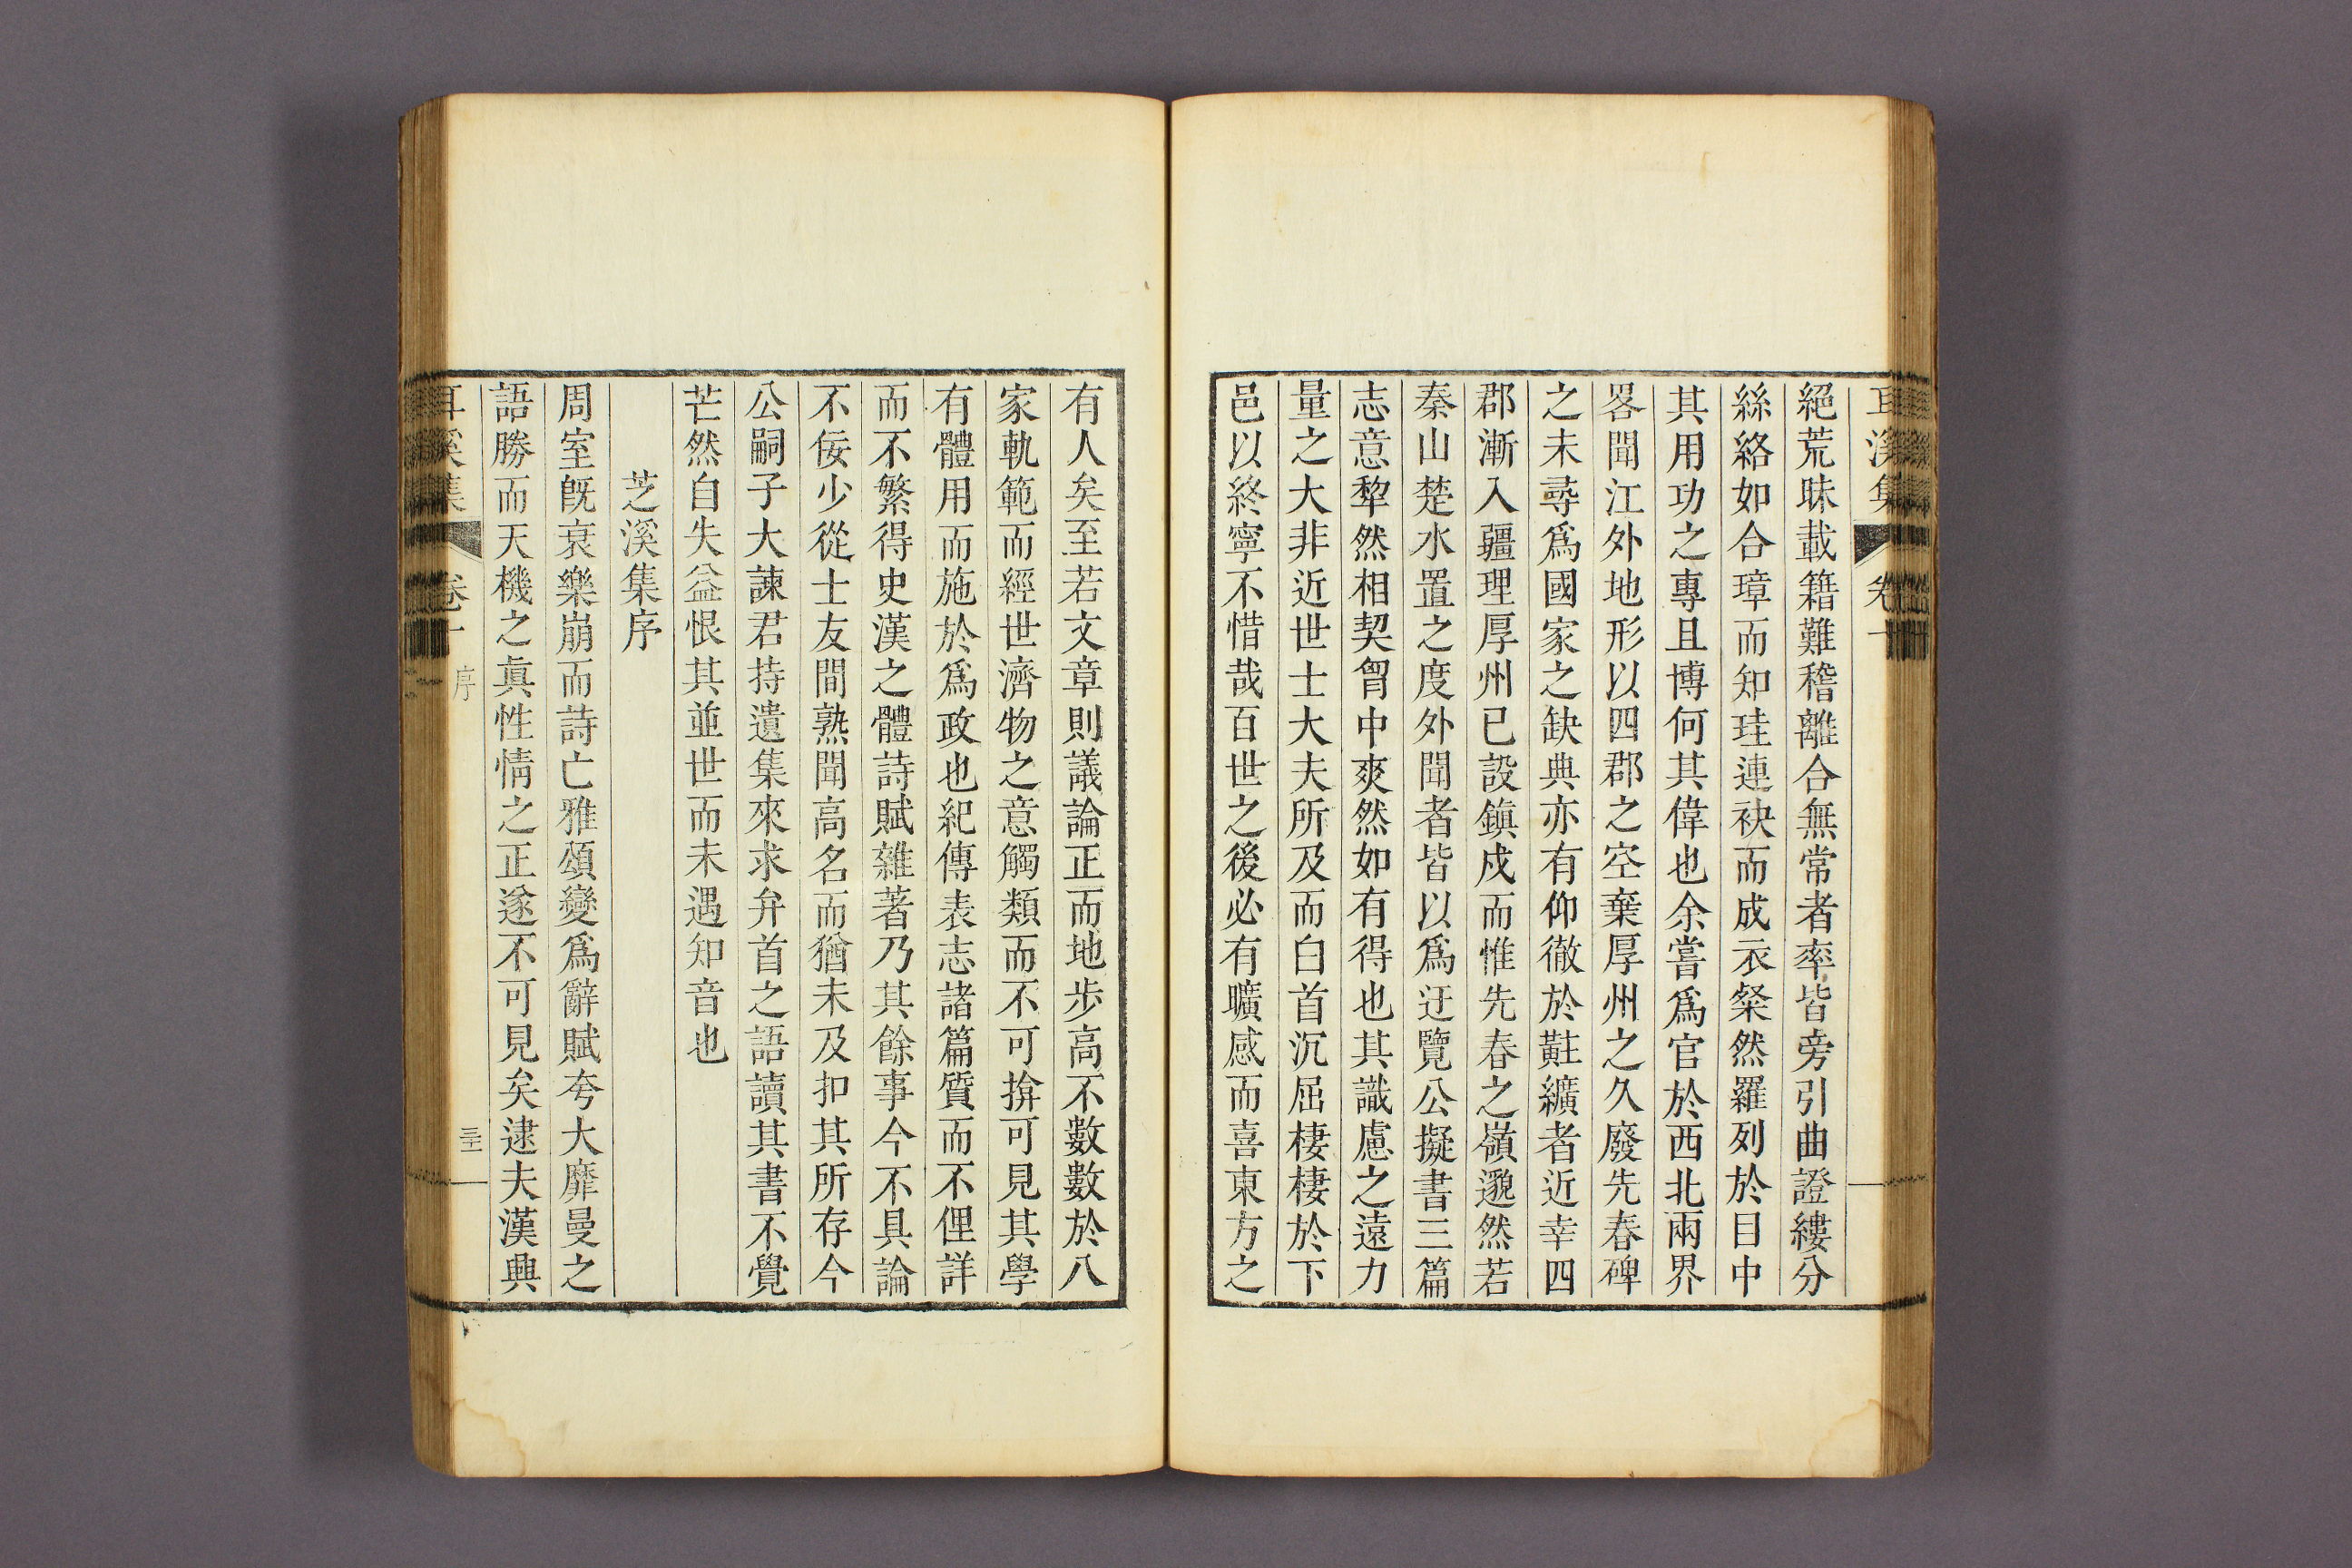 耳溪集 卷十
絕荒昧載籍難稽離合無常者率皆旁引曲證縷分
絲絡如合璋而知珪連袂而成衣粲然羅列於目中
其用功之專且博何其偉也余嘗爲官於西北兩界
畧聞江外地形以四郡之空棄厚州之久廢先春碑
之未尋爲國家之缺典亦有仰徹於黈纊者近幸四
郡漸入疆理厚州已設鎭戍而惟先春之嶺邈然若
秦山楚水置之度外聞者皆以爲迂覽公擬書三篇
志意犂然相契胷中爽然如有得也其識慮之遠力
量之大非近世士大夫所及而白首沉屈棲棲於下
邑以終寧不惜哉百世之後必有曠感而喜東方之
有人矣至若文章則議論正而地步高不數數於八
家軌範而經世濟物之意觸類而不可揜可見其學
有體用而施於爲政也紀傳表志諸篇質而不俚詳
而不繁得史漢之體詩賦雜著乃其餘事今不具論
不佞少從士友間熟聞高名而猶未及扣其所存今
公嗣子大諫君持遺集來求弁首之語讀其書不覺
芒然自失益恨其並世而未遇知音也
芝溪集序
周室旣衰樂崩而詩亡雅頌變爲辭賦夸大靡曼之
語勝而天機之眞性情之正遂不可見矣逮夫漢興
耳溪集 卷十 序